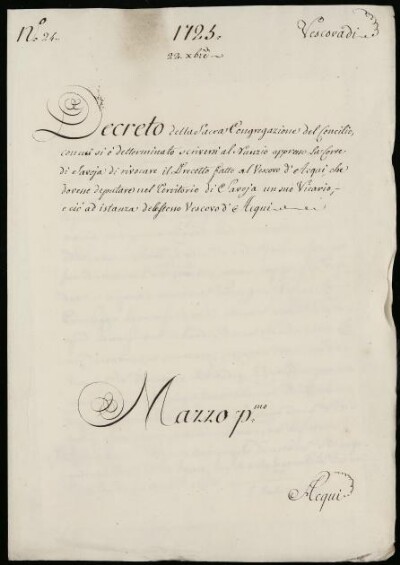 N.º 24.
1725.
Vescovadi
22 xbre
Decreto della Sacra Congregazione del Concilio,
con cui si è determinato scriversi al Nunzio appresso la Corte
di Savoja di rivocare il Precetto fatto al Vescovo d'Acqui che
dovesse deputare nel Territorio di Savoja un suo Vicario,
e ciò ad istanza dello stesso Vescovo d'Acqui
Mazzo p.mo
Acqui